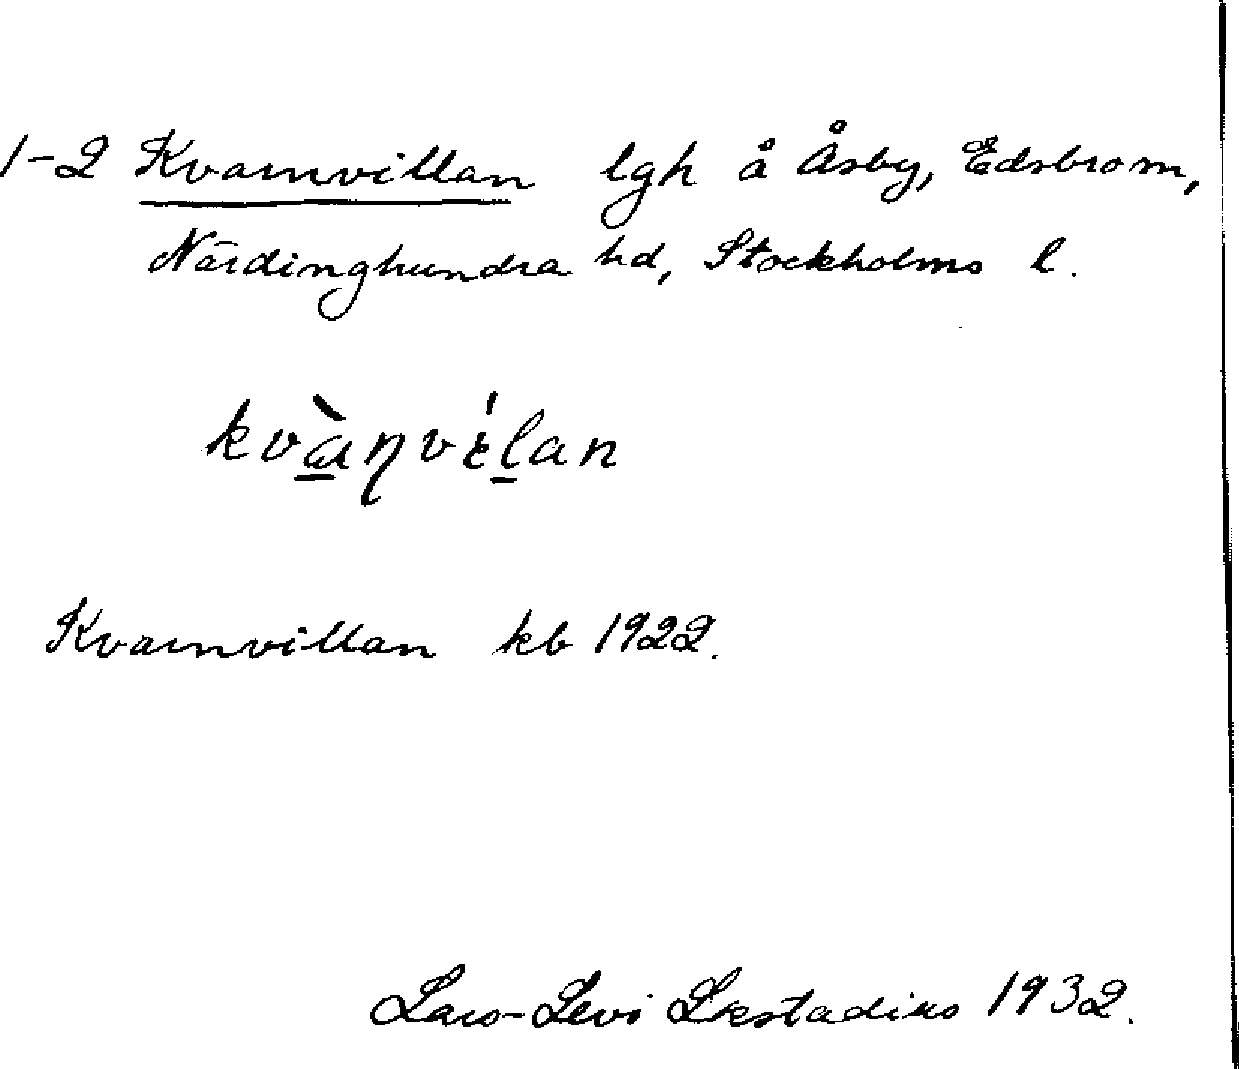 1-2 Kvarnvillan lgh å Åsby, Edsbro sn,
Närdinghundra hd, Stockholms l.
kvà̱ŋvílan
Kvarnvillan kb 1922.
Lars-Levi Læstadius 1932.